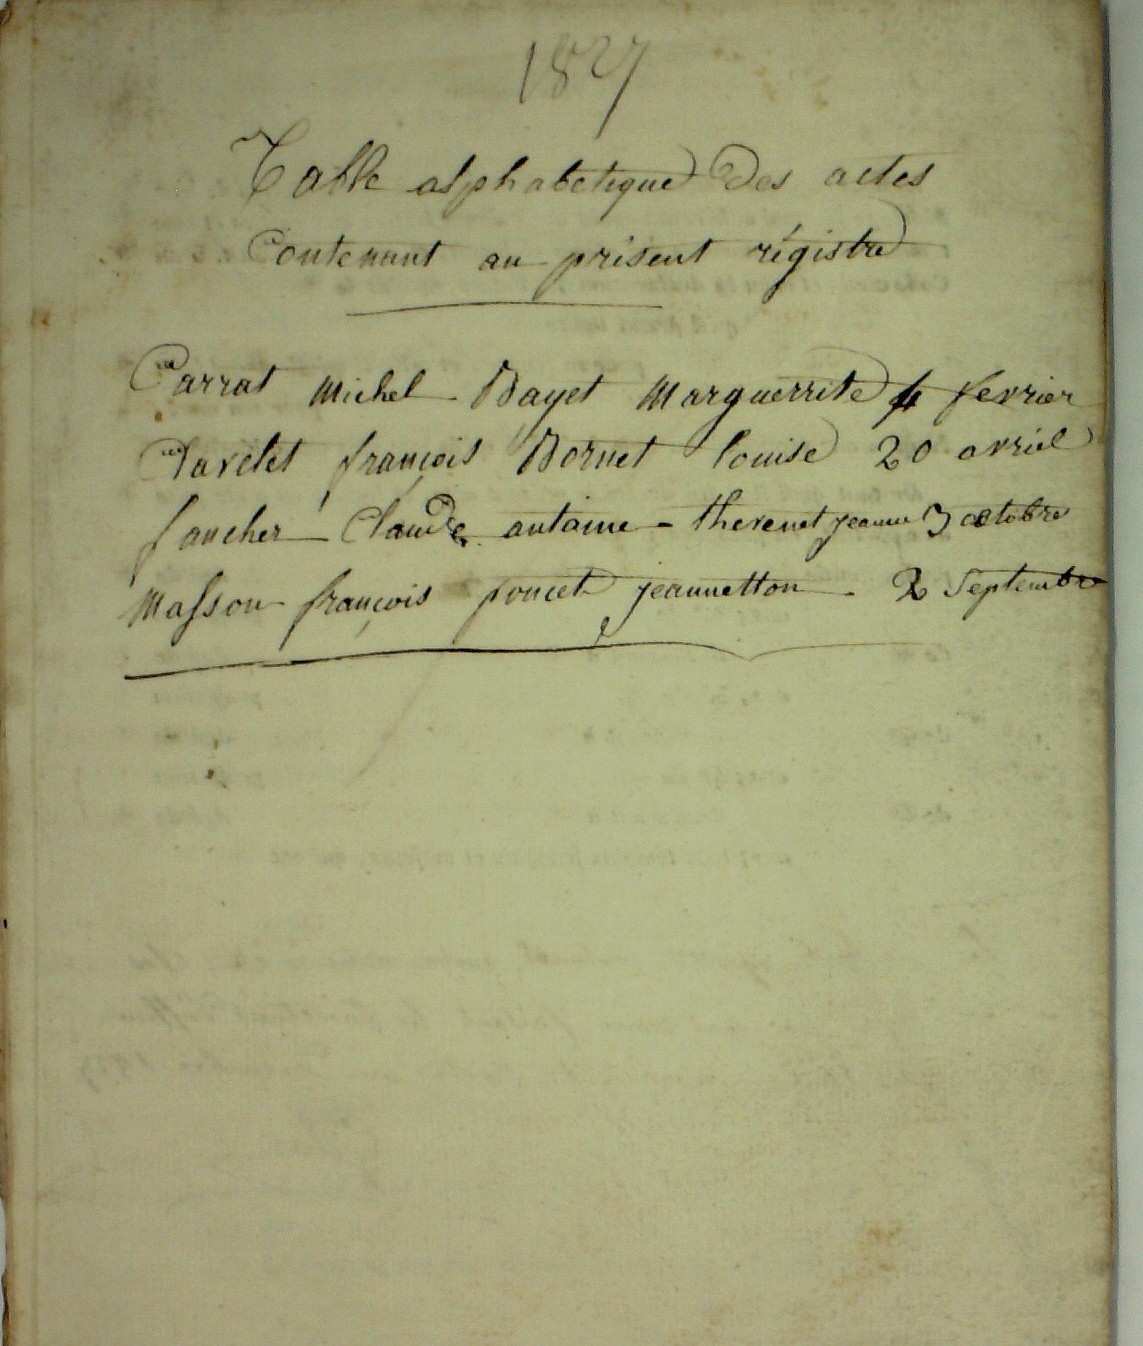 1827
Table alphabetique Des actes
Contenant au présent régistre
Carrat Michel Bayet Marguerrite 4 fevrier
Clavelet françois Bornet louise 20 avriel
faucher Claude antoine - thevenet jeanne 3 octobre
Masson françois poncet jeannetton - 2 Septembre